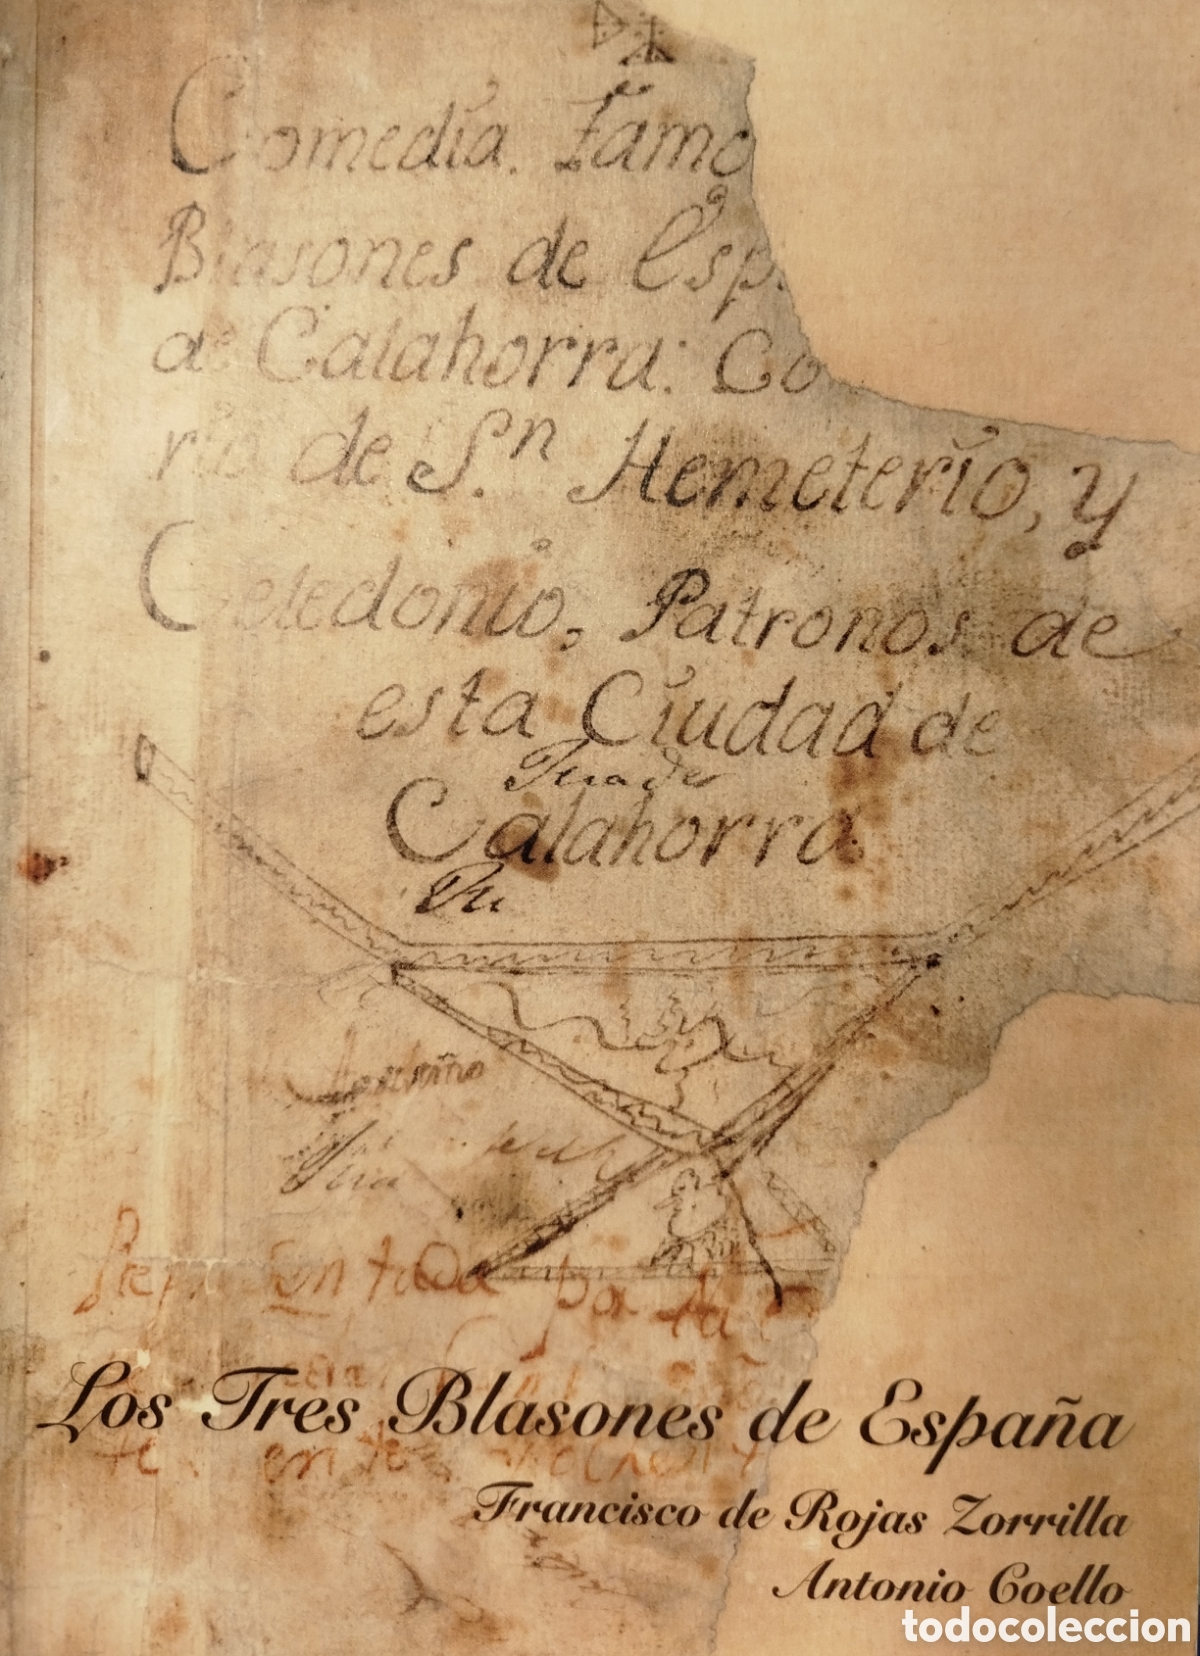 Comedia. Famo
Blasones de Esp
de Calahorra: Co
rio de Sn. Hemeterio, y
Celedonio, Patronos de
esta Ciudad de
Calahorra
Representada por la
Los Tres Blasones de España
Francisco de Rojas Zorrilla
Antonio Coello
todocoleccion